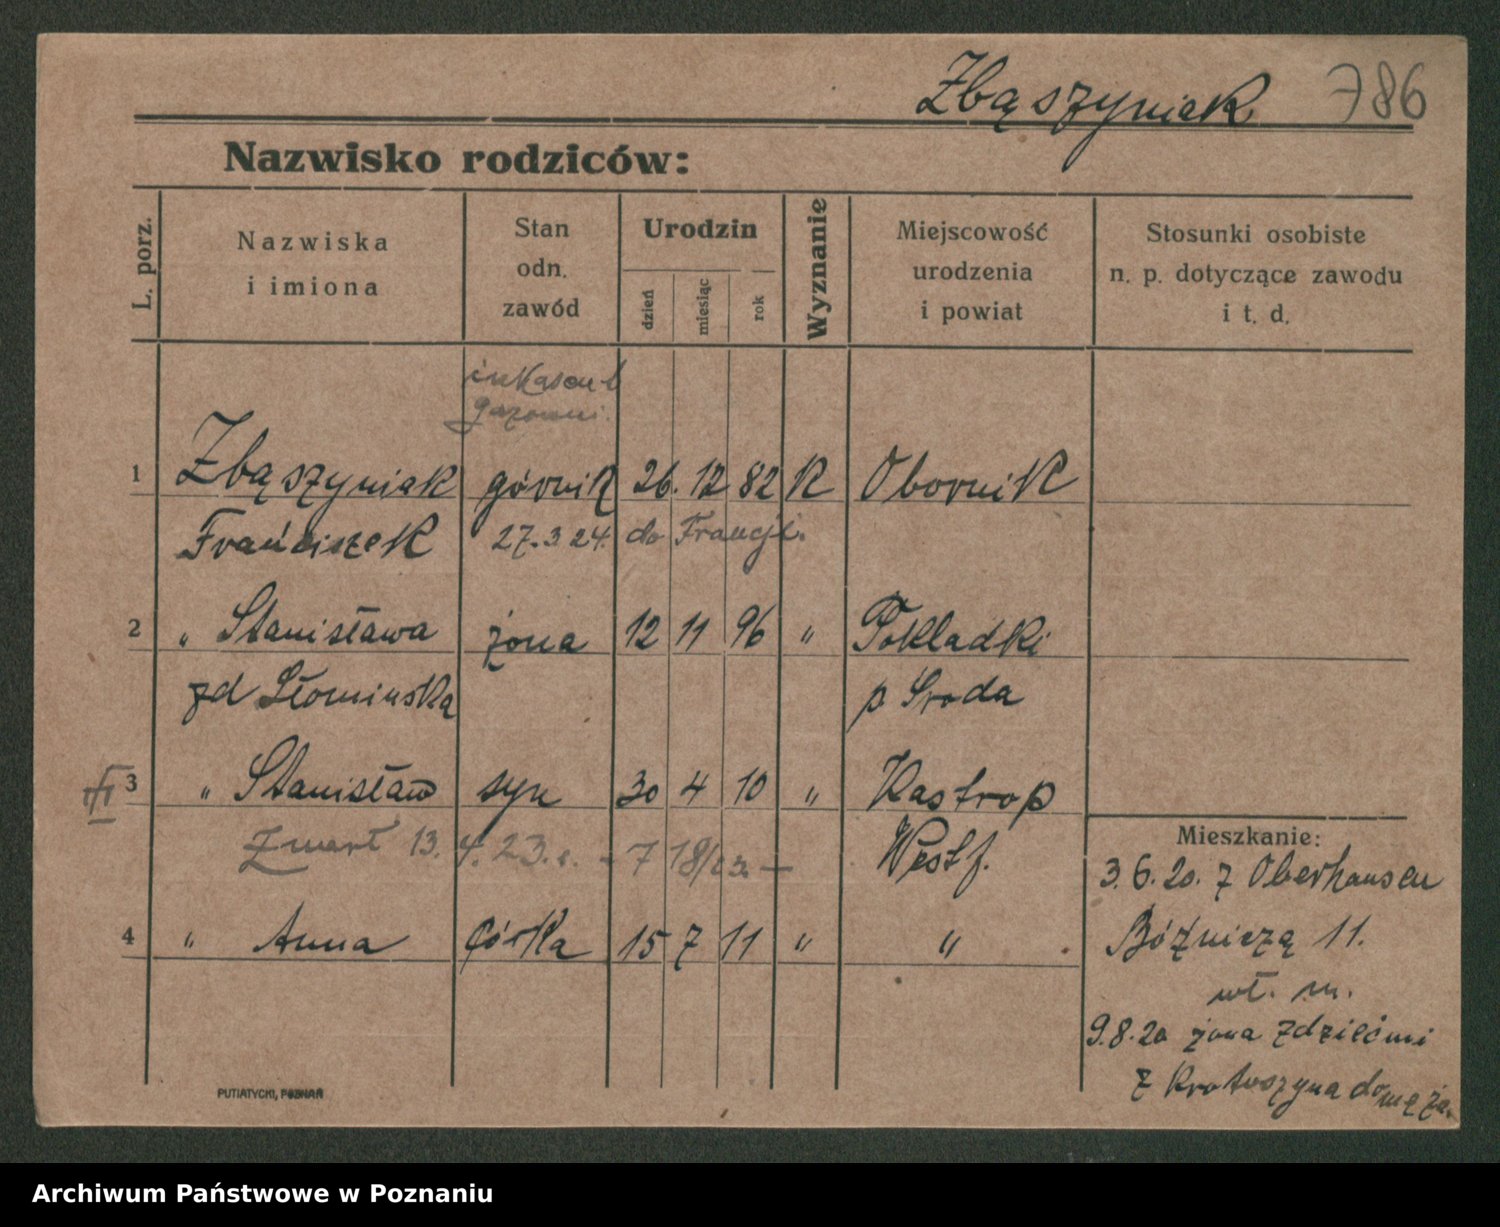 Zbąszyniak 786
Nazwisko rodziców:
L. porz.
Nazwiska
i imiona
Stan
odn.
zawód
Urodzin
dzień
miesiąc
rok
Wyznanie
Miejscowość
urodzenia
i powiat
Stosunki osobiste
n. p. dotyczące zawodu
i t. d.
inkasent
gazowni.
1 Zbąszyniak górnik 26. 12 82 K Obornik
Franciszek 27.3.24. do Francji.
2 „ Stanisława żona 12 11 96 „ Pokladki
zd Słomińska p Sroda
3 „ Stanisław syn 30 4 10 „ Kastrop
Zmarł 13. 4. 23. Westf.
4 „ Anna córka 15 7 11 „ „
Mieszkanie:
3.6.20. z Oberhausen
Bóżniczą 11.
wł. m.
9.8.20 żona z dziećmi
z Krotoszyna do męża.
PUTIATYCKI, POZNAŃ
Archiwum Państwowe w Poznaniu